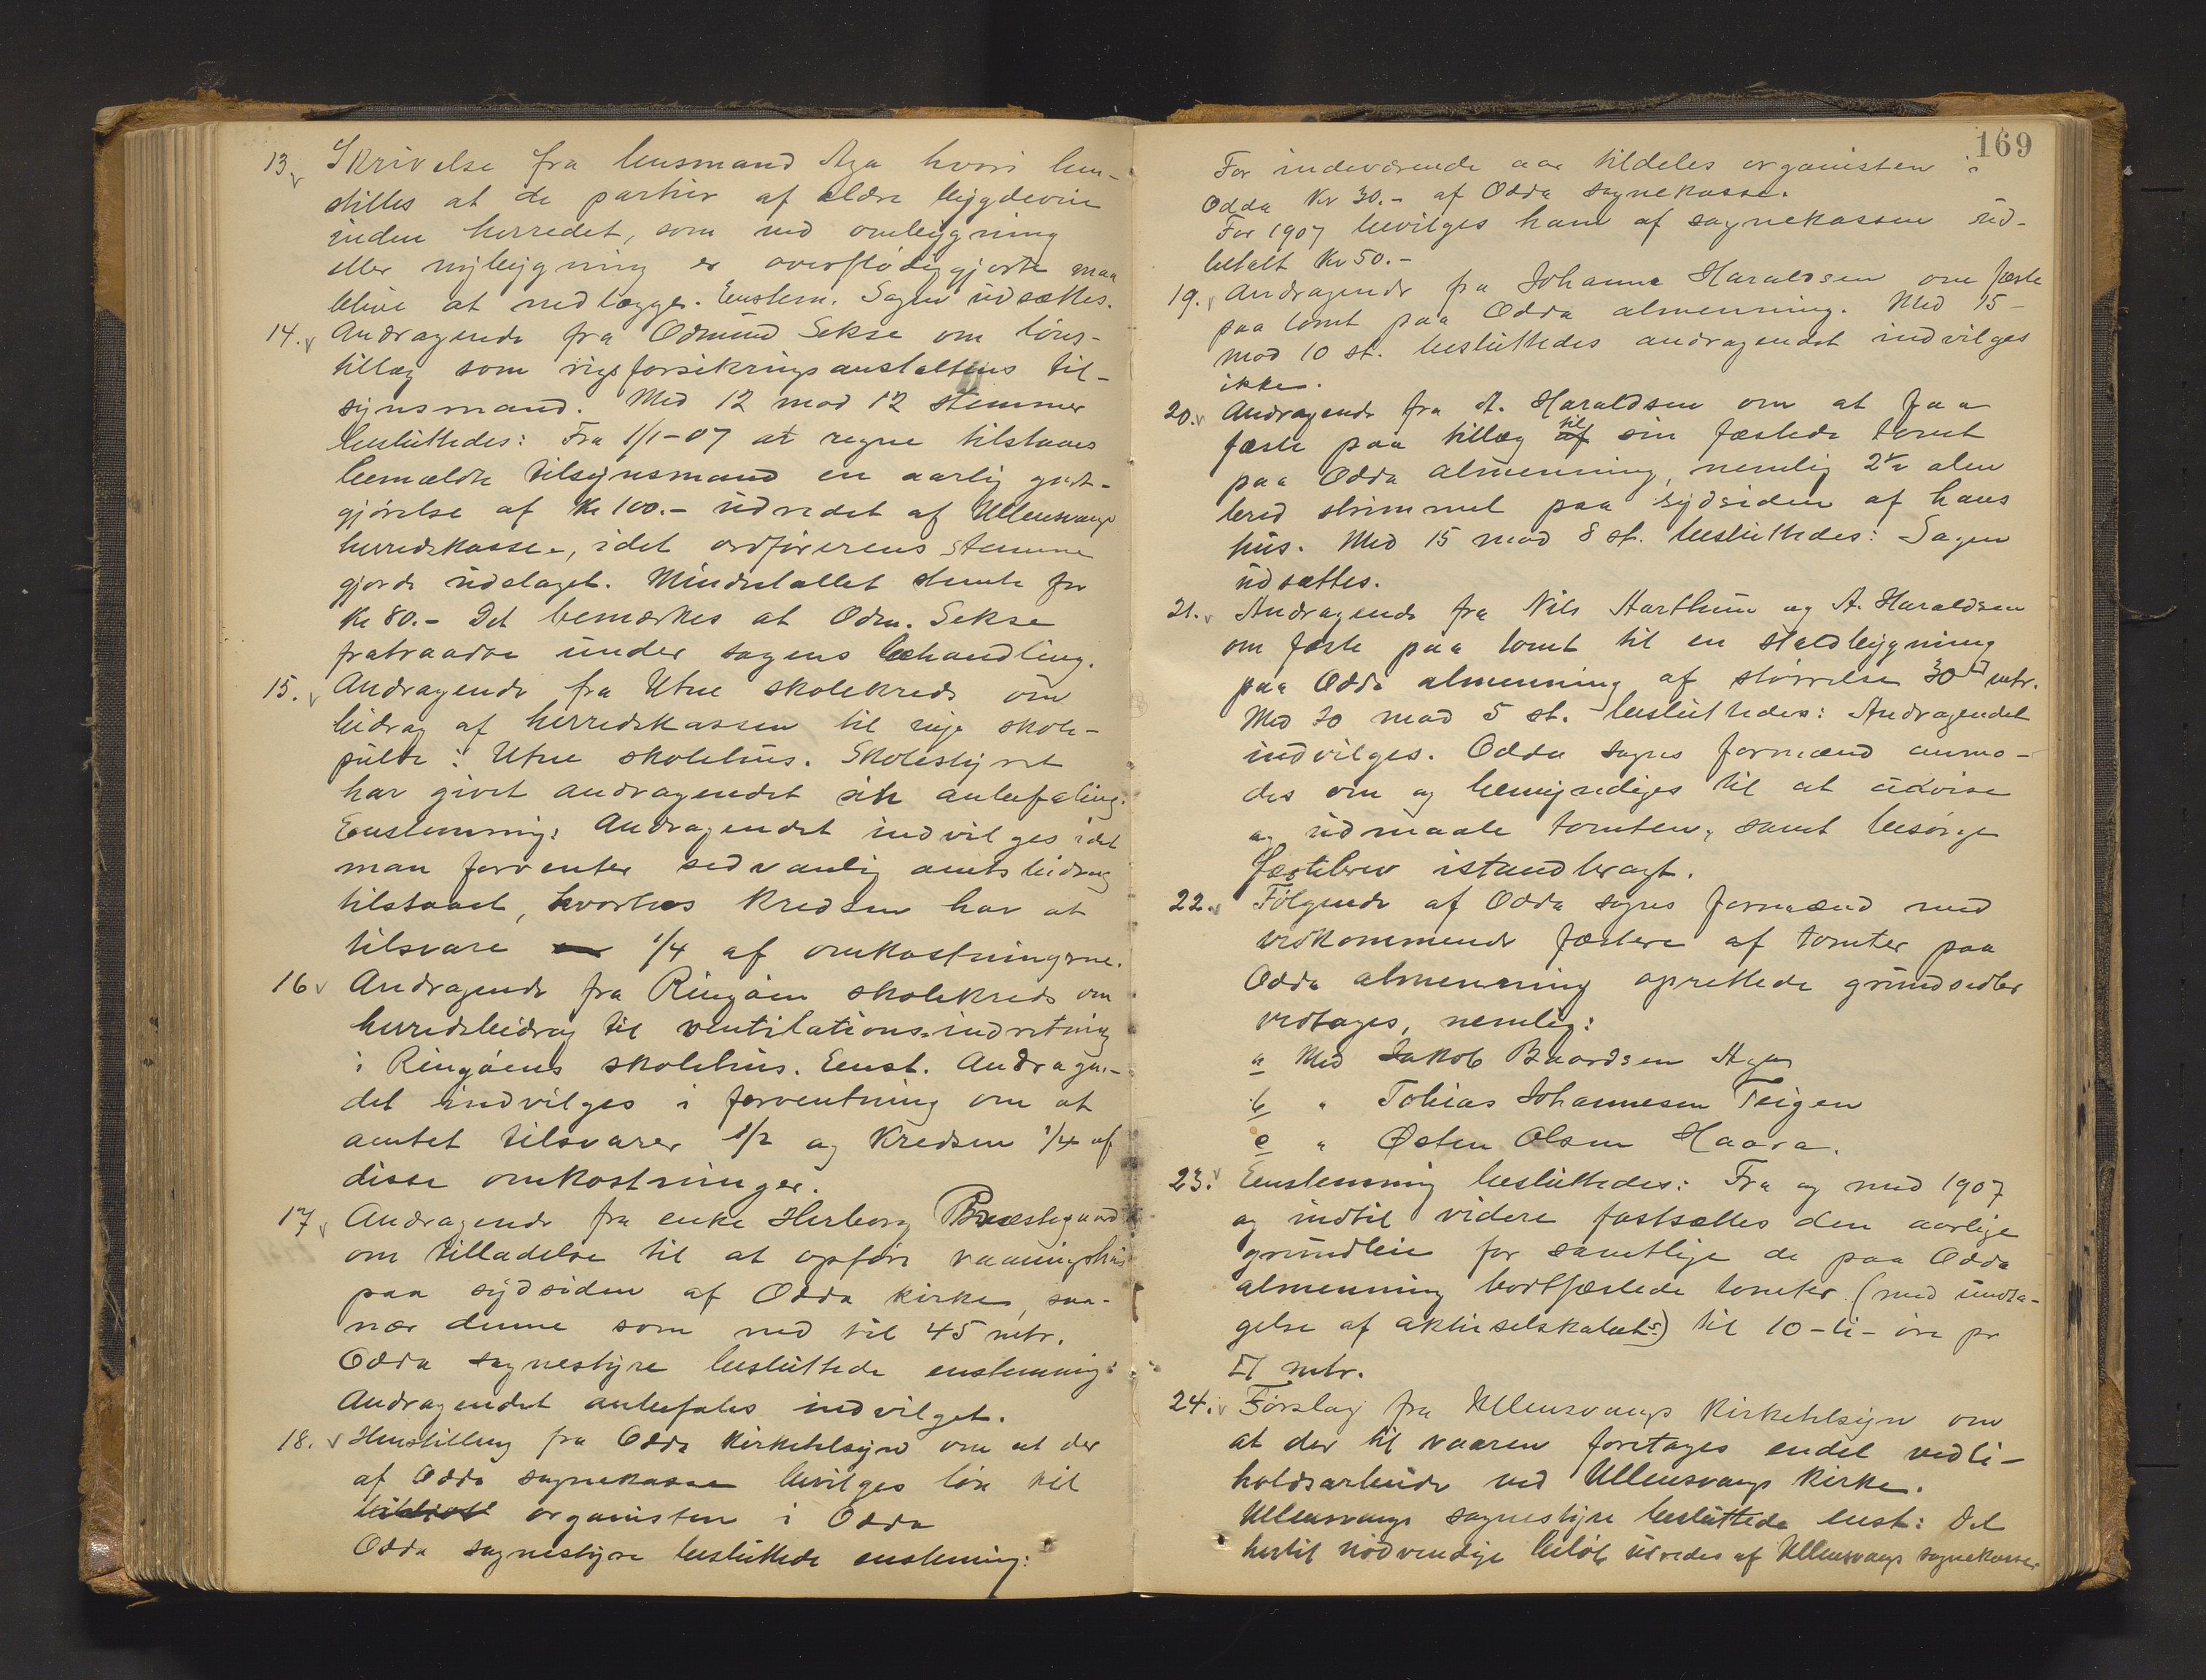 13. Skrivelse fra lensmand Aga hvori hen-
stilles at de partier af ældre bygdevie
inden herredet, som ved omlægning
eller nybygning er overflødiggjorte maa
blive at nedlægge. Enstem. Sagen udsættes.
14. Andragende fra Odmund Sekse om løns-
tillæg som rigsforsikringsanstaltens til-
synsmand. Med 12 mod 12 stemmer
besluttedes: Fra 1/1-07 at regne tilstaaes
bemældte tilsynsmand en aarlig godt-
gjørelse af Kr 100.- udredet af Ullensvangs
herredskasse, idet ordførerens stemme
gjorde udslaget. Mindretallet stemte for
Kr 80.- Det bemærkes at Odm. Sekse
fratraadte under sagens behandling.
15. Andragende fra Utne skolekreds om
bidrag af herredskassen til nye skole-
pulte i Utne skolehus. Skolestyret
har givet andragendet sin anbefaling.
Enstemmig: Andragendet indvilges idet
man forventer sedvanlig amtsbidrag
tilstaaet, hvorhos kredsen har at
tilsvare 1/4 af omkostningerne.
16 Andragende fra Ringøen skolekreds om
herredsbidrag til ventilations-indretning
i Ringøens skolehus. Enst. Andragen-
det indvilges i forventning om at
amtet tilsvarer 1/2 og kredsen 1/4 af
disse omkostninger.
17 Andragende fra enke Herborg Præstegaard
om tilladelse til at opføre vaaningshus
paa sydsiden af Odda kirke, saa-
nær denne som ned til 45 mtr.
Odda sognestyre besluttede enstemmig:
Andragendet anbefales indvilget.
18. Henstilling fra Odda kirketilsyn om at der
af Odda sognekasse bevilges løn til
organisten i Odda
Odda sognestyre besluttede enstemmig:
169
For indeværende aar tildeles organisten i
Odda Kr 30.- af Odda sognekasse.
For 1907 bevilges ham af sognekassen ud-
betalt Kr 50.-
19. Andragende fra Johanne Haraldsen om fæste
paa tomt paa Odda almenning. Med 15
mod 10 st. besluttedes andragendet indvilges
ikke.
20. Andragende fra A. Haraldsen om at faa
fæste paa tillæg af til sin fæstede tomt
paa Odda almenning, nemlig 2½ alen
bred strimmel paa sydsiden af hans
hus. Med 15 mod 8 st. besluttedes: Sagen
udsættes.
21. Andragende fra Nils Harthun og A. Haraldsen
om fæste paa tomt til en staldbygning
paa Odda almenning af størrelse 30 □ mtr.
Med 20 mod 5 st. besluttedes: Andragendet
indvilges. Odda sogns formænd anmo-
des om og bemyndiges til at udvise
og udmaale tomten, samt besørge
fæstebrev istandbragt.
22. Følgende af Odda sogns formænd med
vedkommende fæstere af tomter paa
Odda almenning oprettede grundsedler
vedtages, nemlig:
a Med Jakob Baardsen Aga
b " Tobias Johannesen Teigen
c " Østen Olsen Haara.
23. Enstemmig besluttedes: Fra og med 1907
og indtil videre fastsættes den aarlige
grundleie for samtlige de paa Odda
almenning bortfæstede tomter (med undta-
gelse af aktieselskabets) til 10 - ti - øre pr
□ mtr.
24. Forslag fra Ullensvangs kirketilsyn om
at der til vaaren foretages endel vedli-
holdsarbeide ved Ullensvangs kirke.
Ullensvangs sognestyre besluttede enst: Det
hertil nødvendige beløb udredes af Ullensvangs sognekasse.